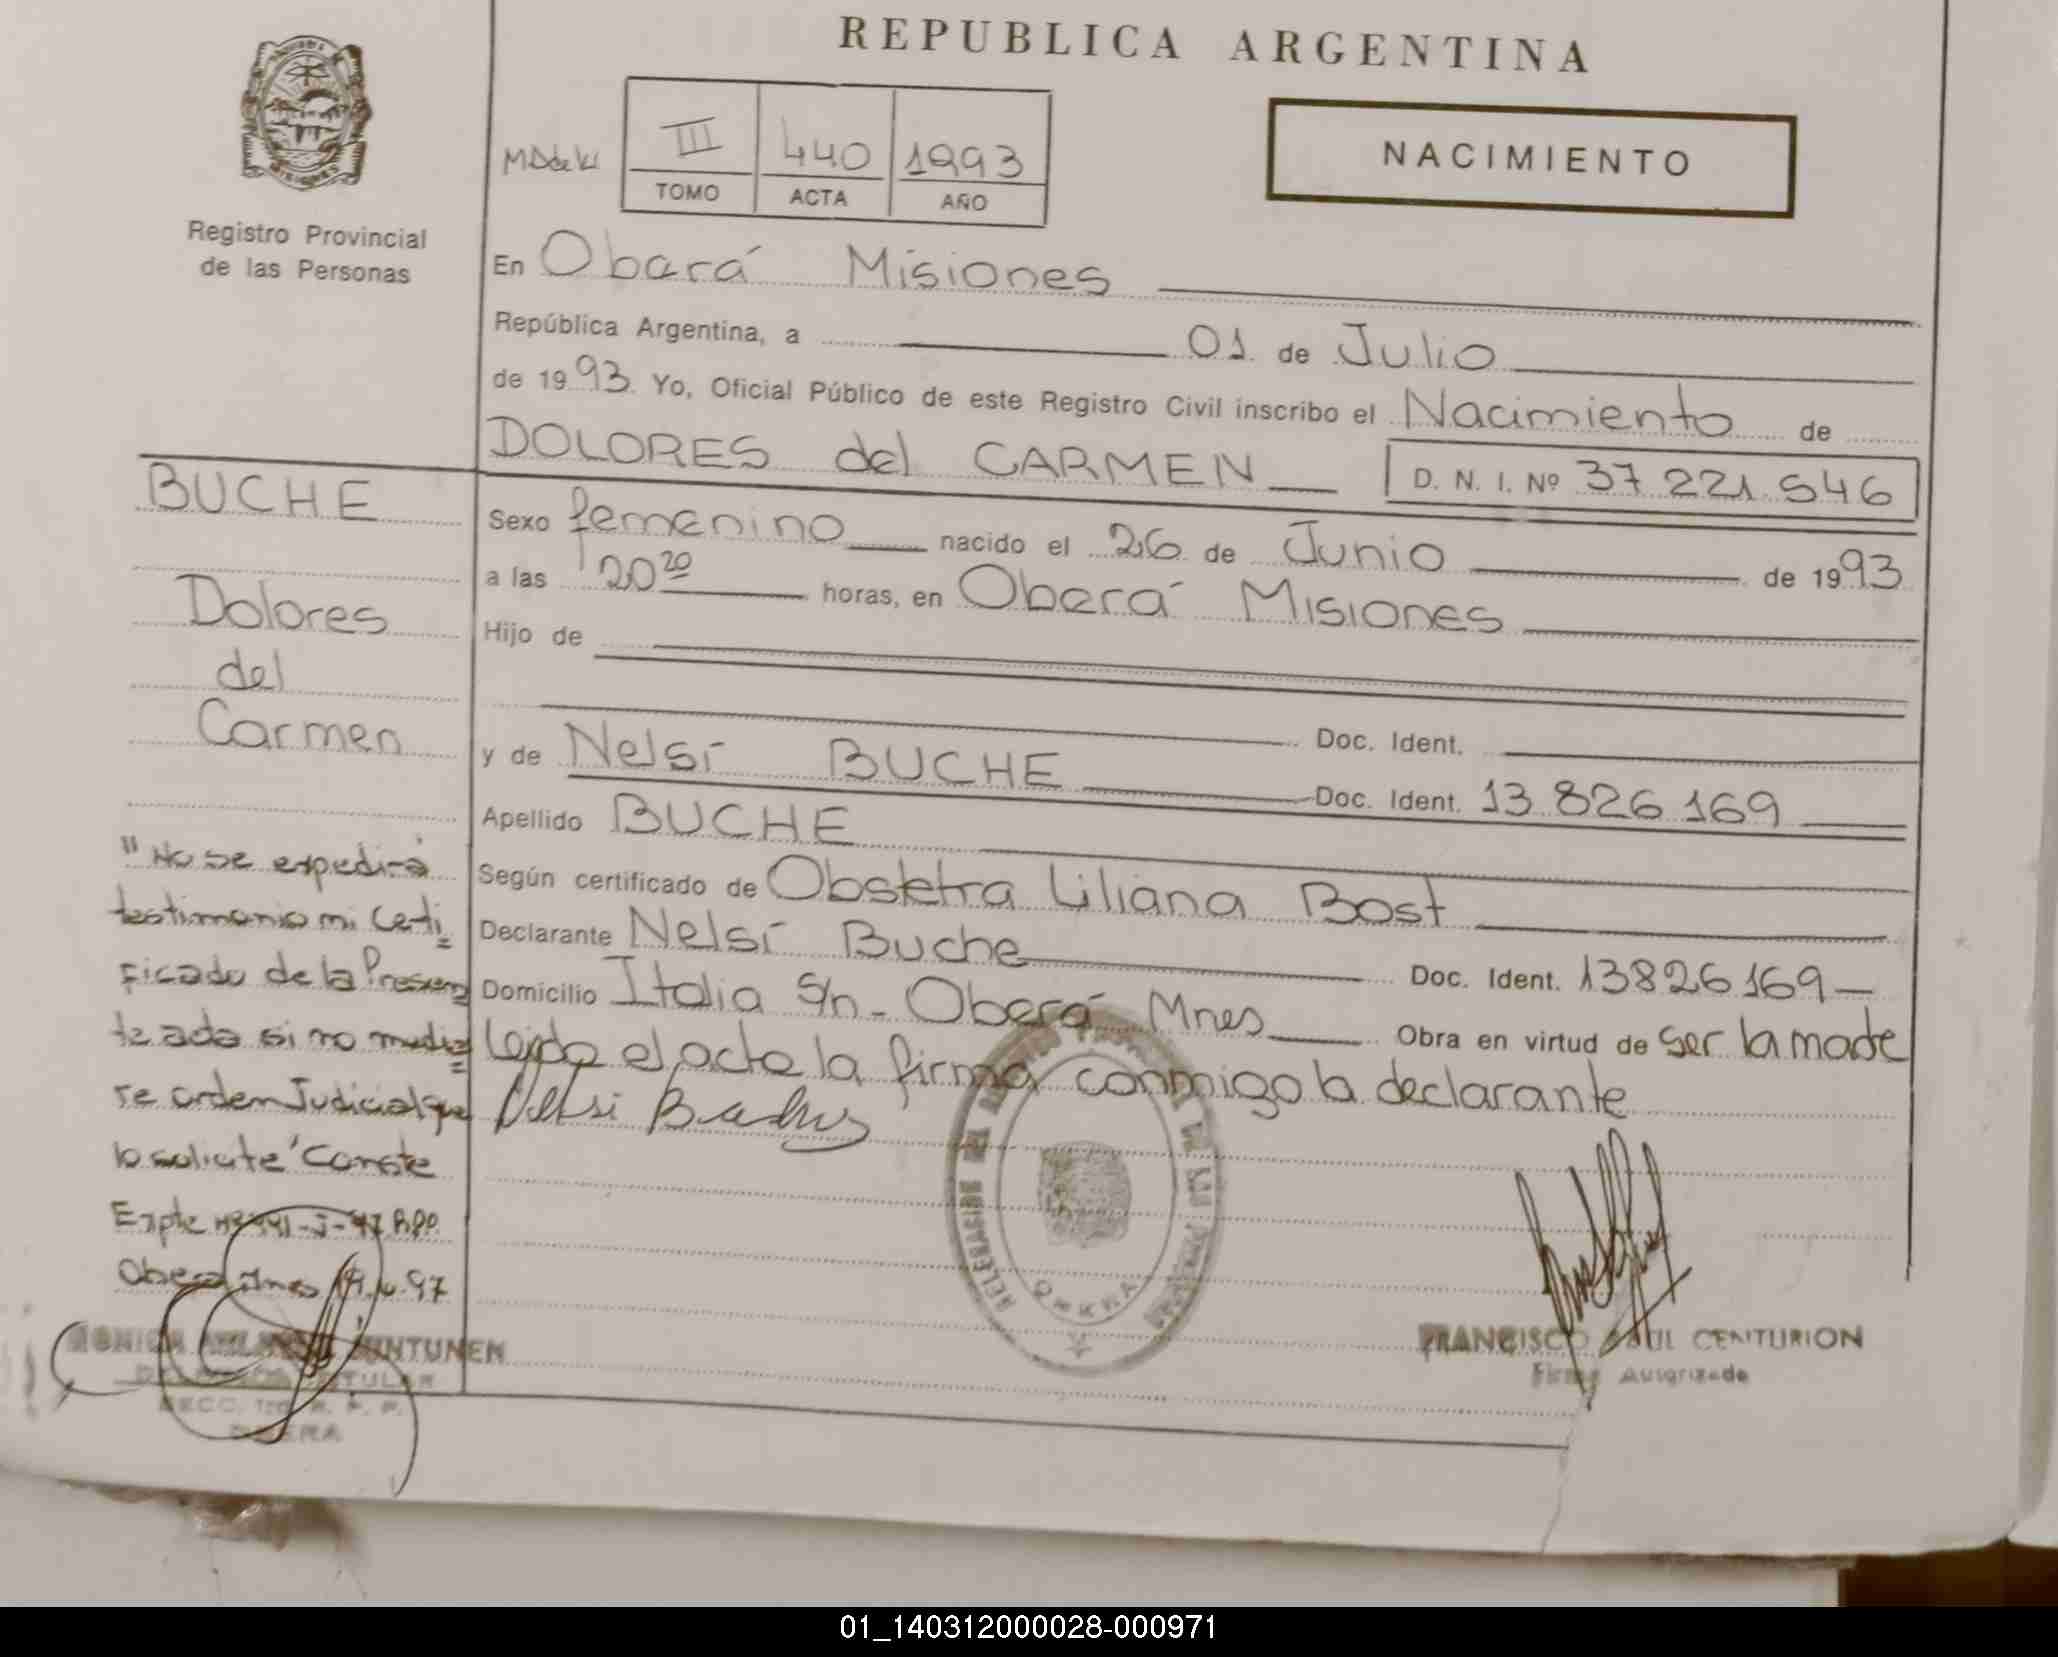 REPUBLICA ARGENTINA
MISIONES
Registro Provincial
de las Personas
III 440 1993
TOMO ACTA AÑO
NACIMIENTO
En Obará Misiones
República Argentina, a 01 de Julio
de 1993 Yo, Oficial Público de este Registro Civil inscribo el Nacimiento de
DOLORES del CARMEN D. N. I. Nº 37 221 546
Sexo femenino nacido el 26 de Junio de 1993
a las 20 20 horas, en Oberá Misiones
Hijo de
Doc. Ident.
y de Nelsi BUCHE Doc. Ident. 13 826 169
Apellido BUCHE
Según certificado de Obstetra Liliana Bost
Declarante Nelsi Buche Doc. Ident. 13826169
Domicilio Italia S/n - Oberá Mnes Obra en virtud de ser la madre
Leida el acta la firma conmigo la declarante
Nelsi
BUCHE
Dolores
del
Carmen
"No se expedirá
testimonio ni Certi=
ficado de la Presen
te acta si no media=
re orden Judicial que
lo solicite" Conste
Expte
Obera Mnes 97
OBERA
FRANCISCO RAUL CENTURION
Firma Autorizada
01_140312000028-000971